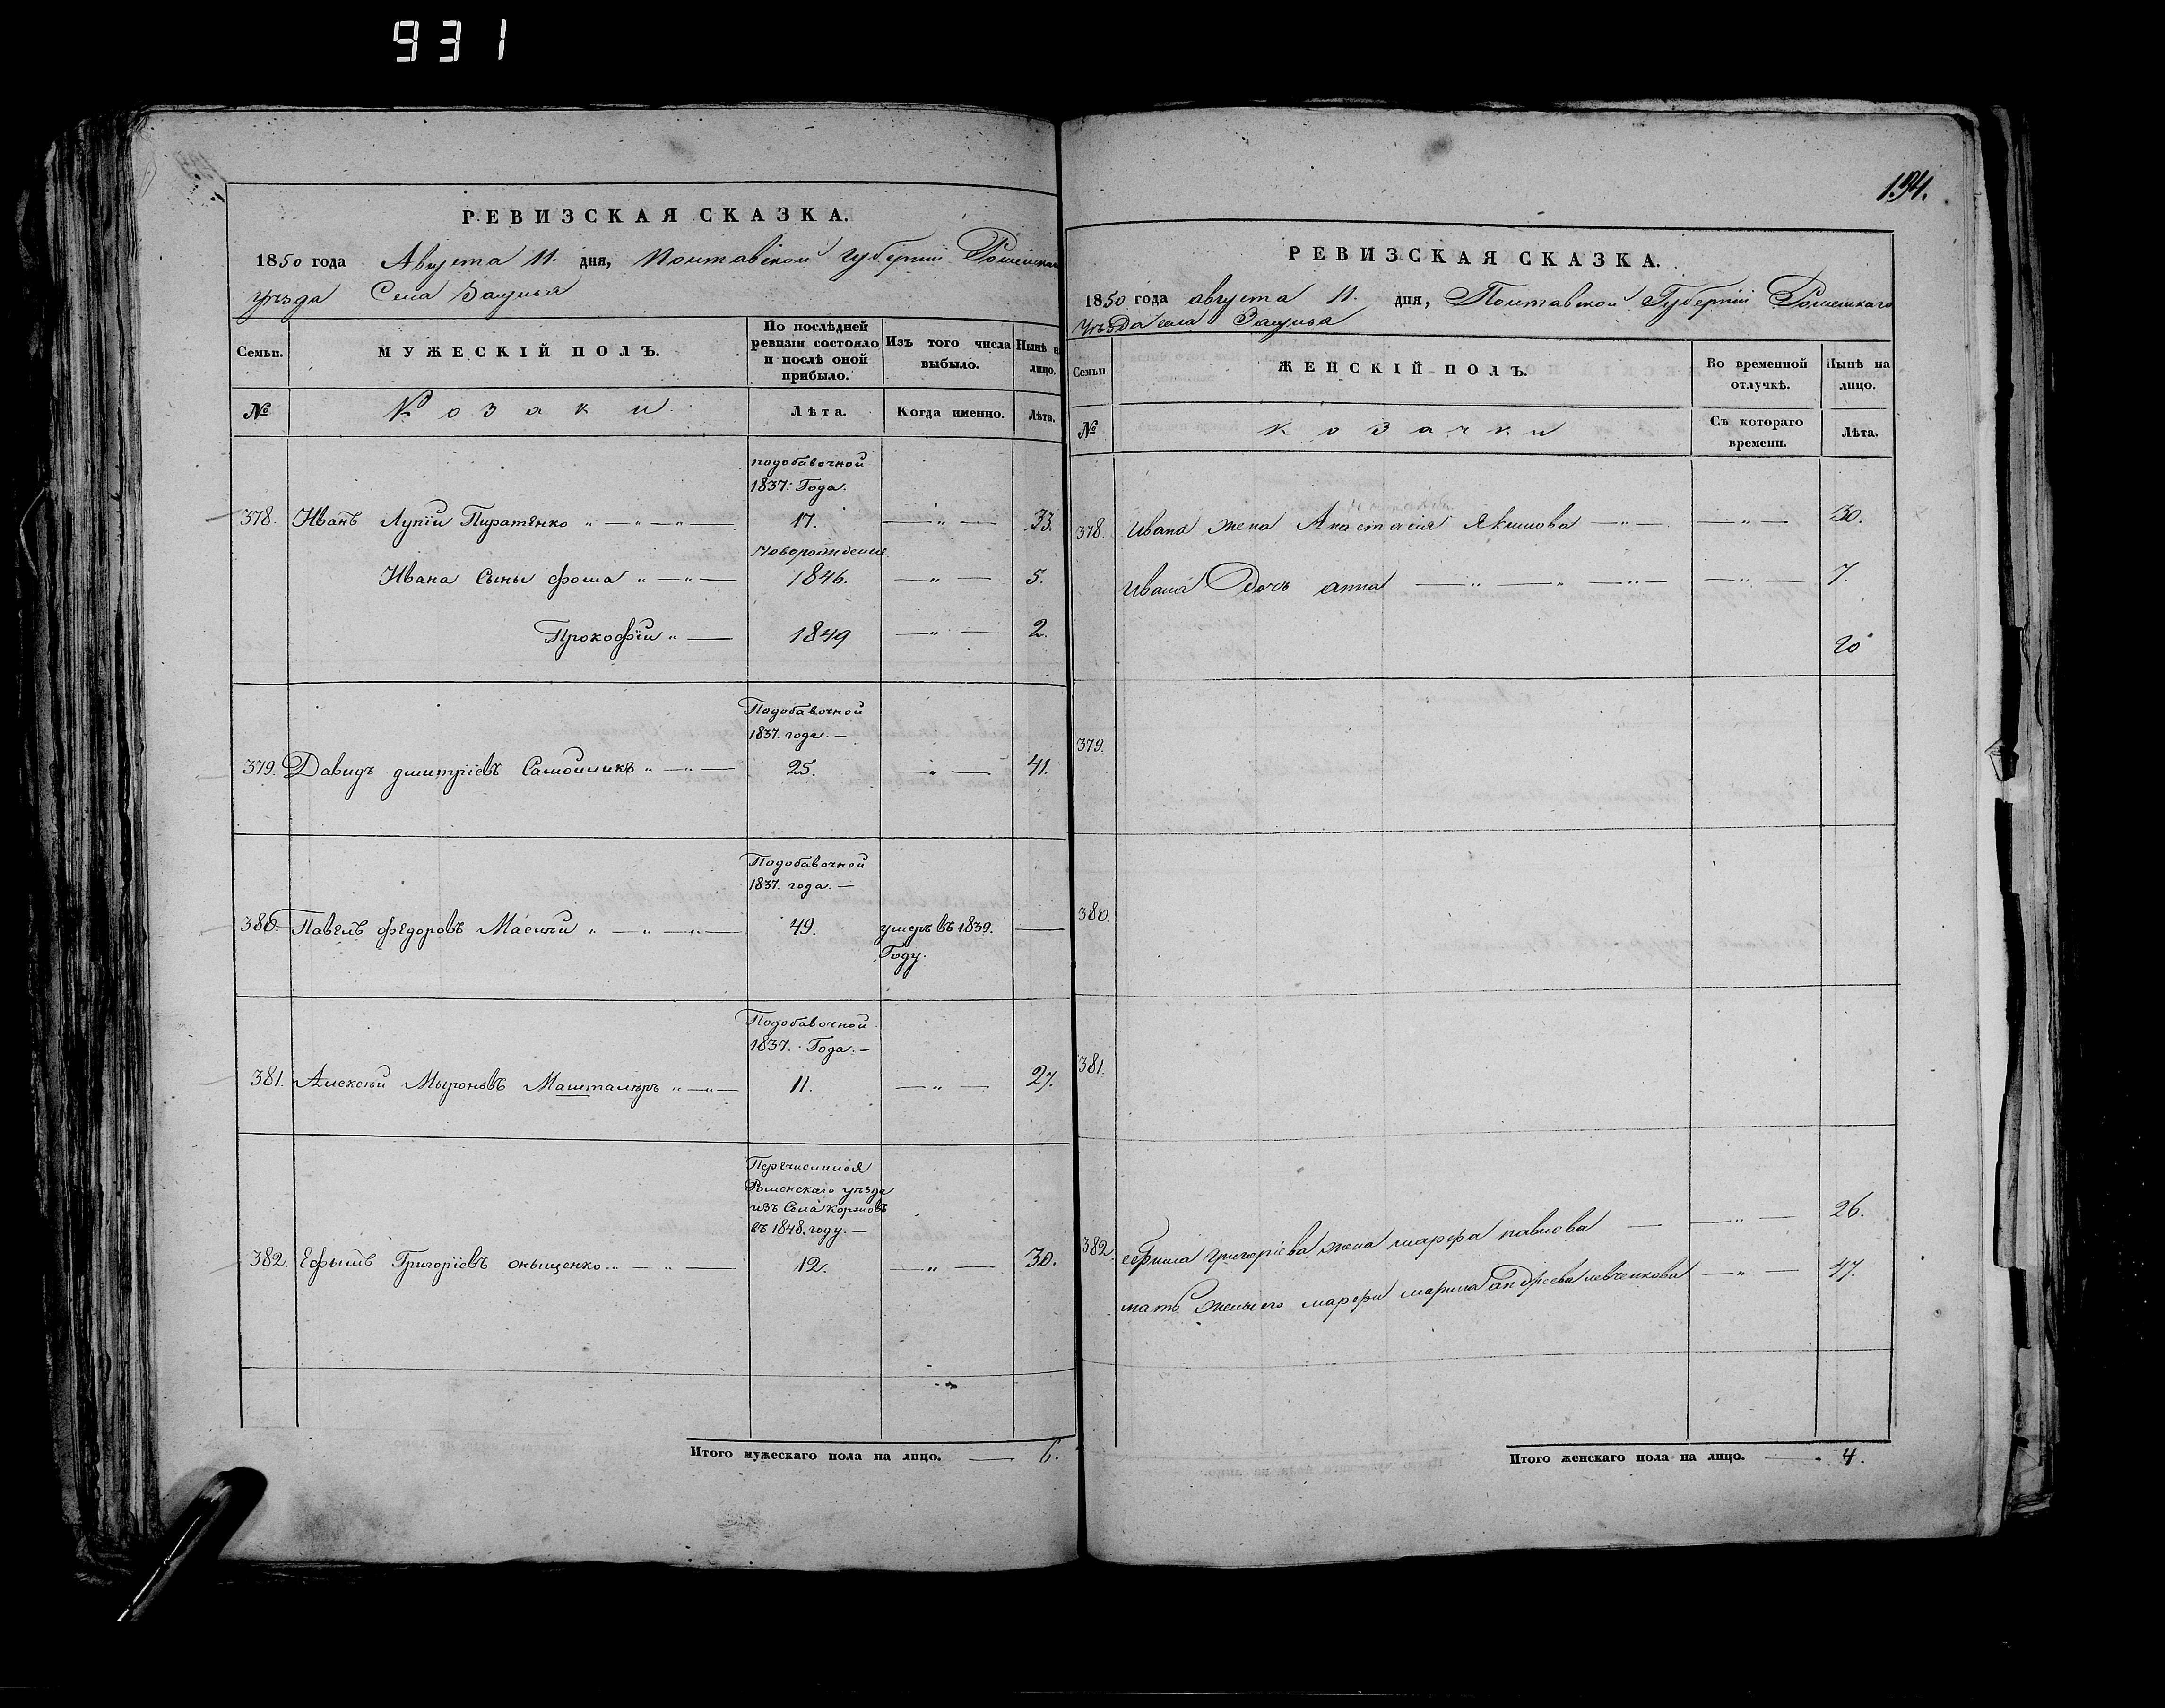 931
РЕВИЗСКАЯ СКАЗКА.
1850 года Августа 11. дня, Полтавской Губернии Роменскаго
уезда Села Засулья
Семьи.
МУЖЕСКІЙ ПОЛЪ.
По послѣдней
ревизіи состояло
и послѣ оной
прибыло.
Изъ того числа
выбыло.
Нынѣ на
лицо.
№
Козаки
Лѣта.
Когда именно.
Лѣта.
подобавочной
1837: Года.
378. Иванъ Лупіи Пиратенко " — " — " — 17. — " — 33.
Новорожденые
Ивана Сыны фома " — " — 1846. — " — 5.
Прокофіи " — 1849 — " — 2.
Подобавочной
1837. года. —
379. Давидъ дмитріевъ Самоиликъ " — " — 25. — " — 41.
Подобавочной
1837. года. —
380. Павелъ федоровъ " — " — " — 49. умеръ въ 1839. —
Году.
Подобавочной
1837. Года. —
381. Алексѣи Мыроновъ Машталѣръ " — " — 11. — " — 27.
Перечислился
Роменскаго уѣзда
изъ Села Коржовъ
въ 1848. году. —
382. Ефымъ Григоріевъ оныщенко " — " — 12. — " — 30.
Итого мужескаго пола на лицо. — 6.
134.
РЕВИЗСКАЯ СКАЗКА.
1850 года августа 11. дня, Полтавской Губерніи Роменскаго
Уѣзда села Засулья
Семьи.
ЖЕНСКІЙ ПОЛЪ.
Во временной
отлучкѣ.
Нынѣ на
лицо.
№
козачки
Съ котораго
времени.
Лѣта.
378. Ивана жена Анастасия Якимова — " — — " — 30.
Ивана Дочь анна — " — " — " — — " — 7.
20
379.
380.
381.
382. ефима григоріева жена марфа павлова — — " — 26.
мать жены его марфи марина андреева левченкова — " — 47.
Итого женскаго пола на лицо. — 4.